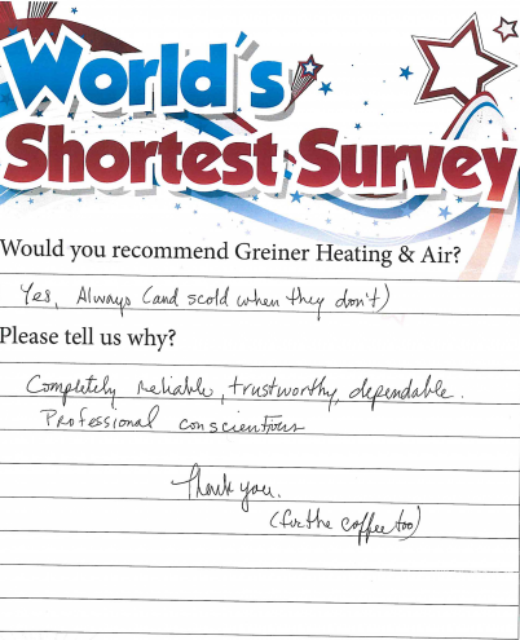 World's
Shortest Survey
Would you recommend Greiner Heating & Air?
Yes, Always (and scold when they don't)
Please tell us why?
Completely reliable, trustworthy, dependable.
Professional conscientious
Thank you.
(for the coffee too)